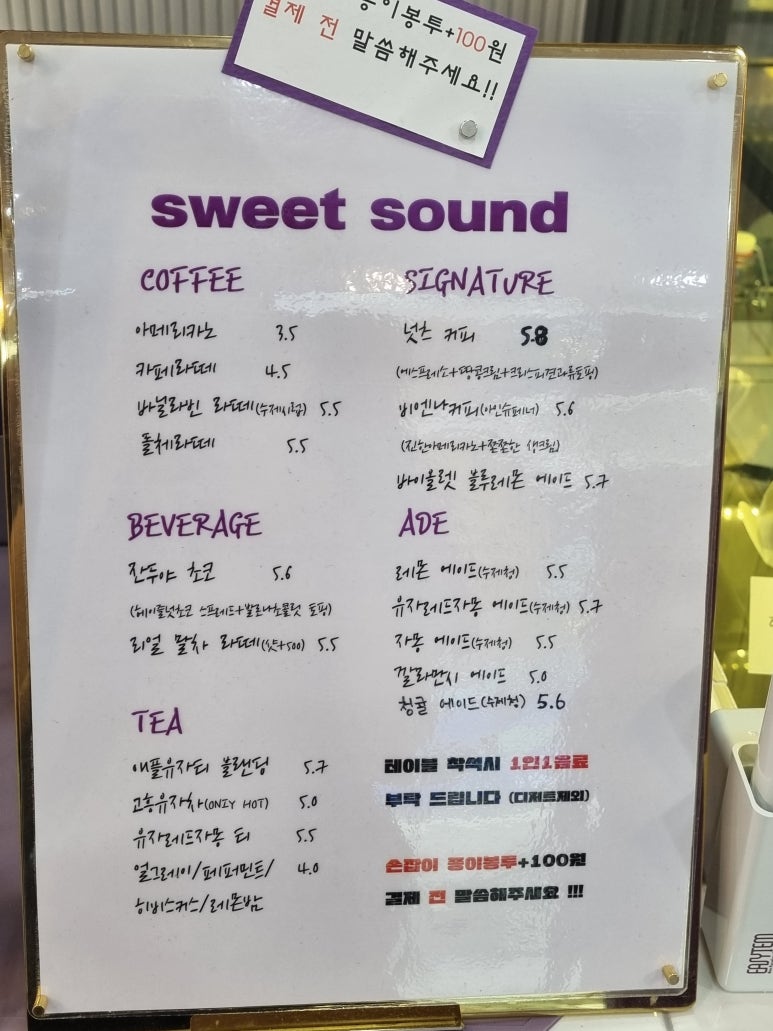 종이봉투+100원
결제 전 말씀해주세요!!
sweet sound
COFFEE
아메리카노 3.5
카페라떼 4.5
바닐라빈 라떼(수제시럽) 5.5
돌체라떼 5.5
SIGNATURE
넛츠 커피 5.8
(에스프레소+땅콩크림+크리스피견과류토핑)
비엔나커피(아인슈페너) 5.6
(진한아메리카노+쫀쫀한 생크림)
바이올렛 블루레몬 에이드 5.7
BEVERAGE
잔두야 초코 5.6
(헤이즐넛초코 스프레드+발로나초콜릿 토핑)
리얼 말차 라떼(샷+500) 5.5
ADE
레몬 에이드(수제청) 5.5
유자레드자몽 에이드(수제청) 5.7
자몽 에이드(수제청) 5.5
깔라만시 에이드 5.0
청귤 에이드(수제청) 5.6
TEA
애플유자티 블랜딩 5.7
고흥유자차(ONLY HOT) 5.0
유자레드자몽 티 5.5
얼그레이/페퍼민트/ 4.0
히비스커스/레몬밤
테이블 착석시 1인1음료
부탁 드립니다 (디저트제외)
손잡이 종이봉투+100원
결제 전 말씀해주세요 !!!